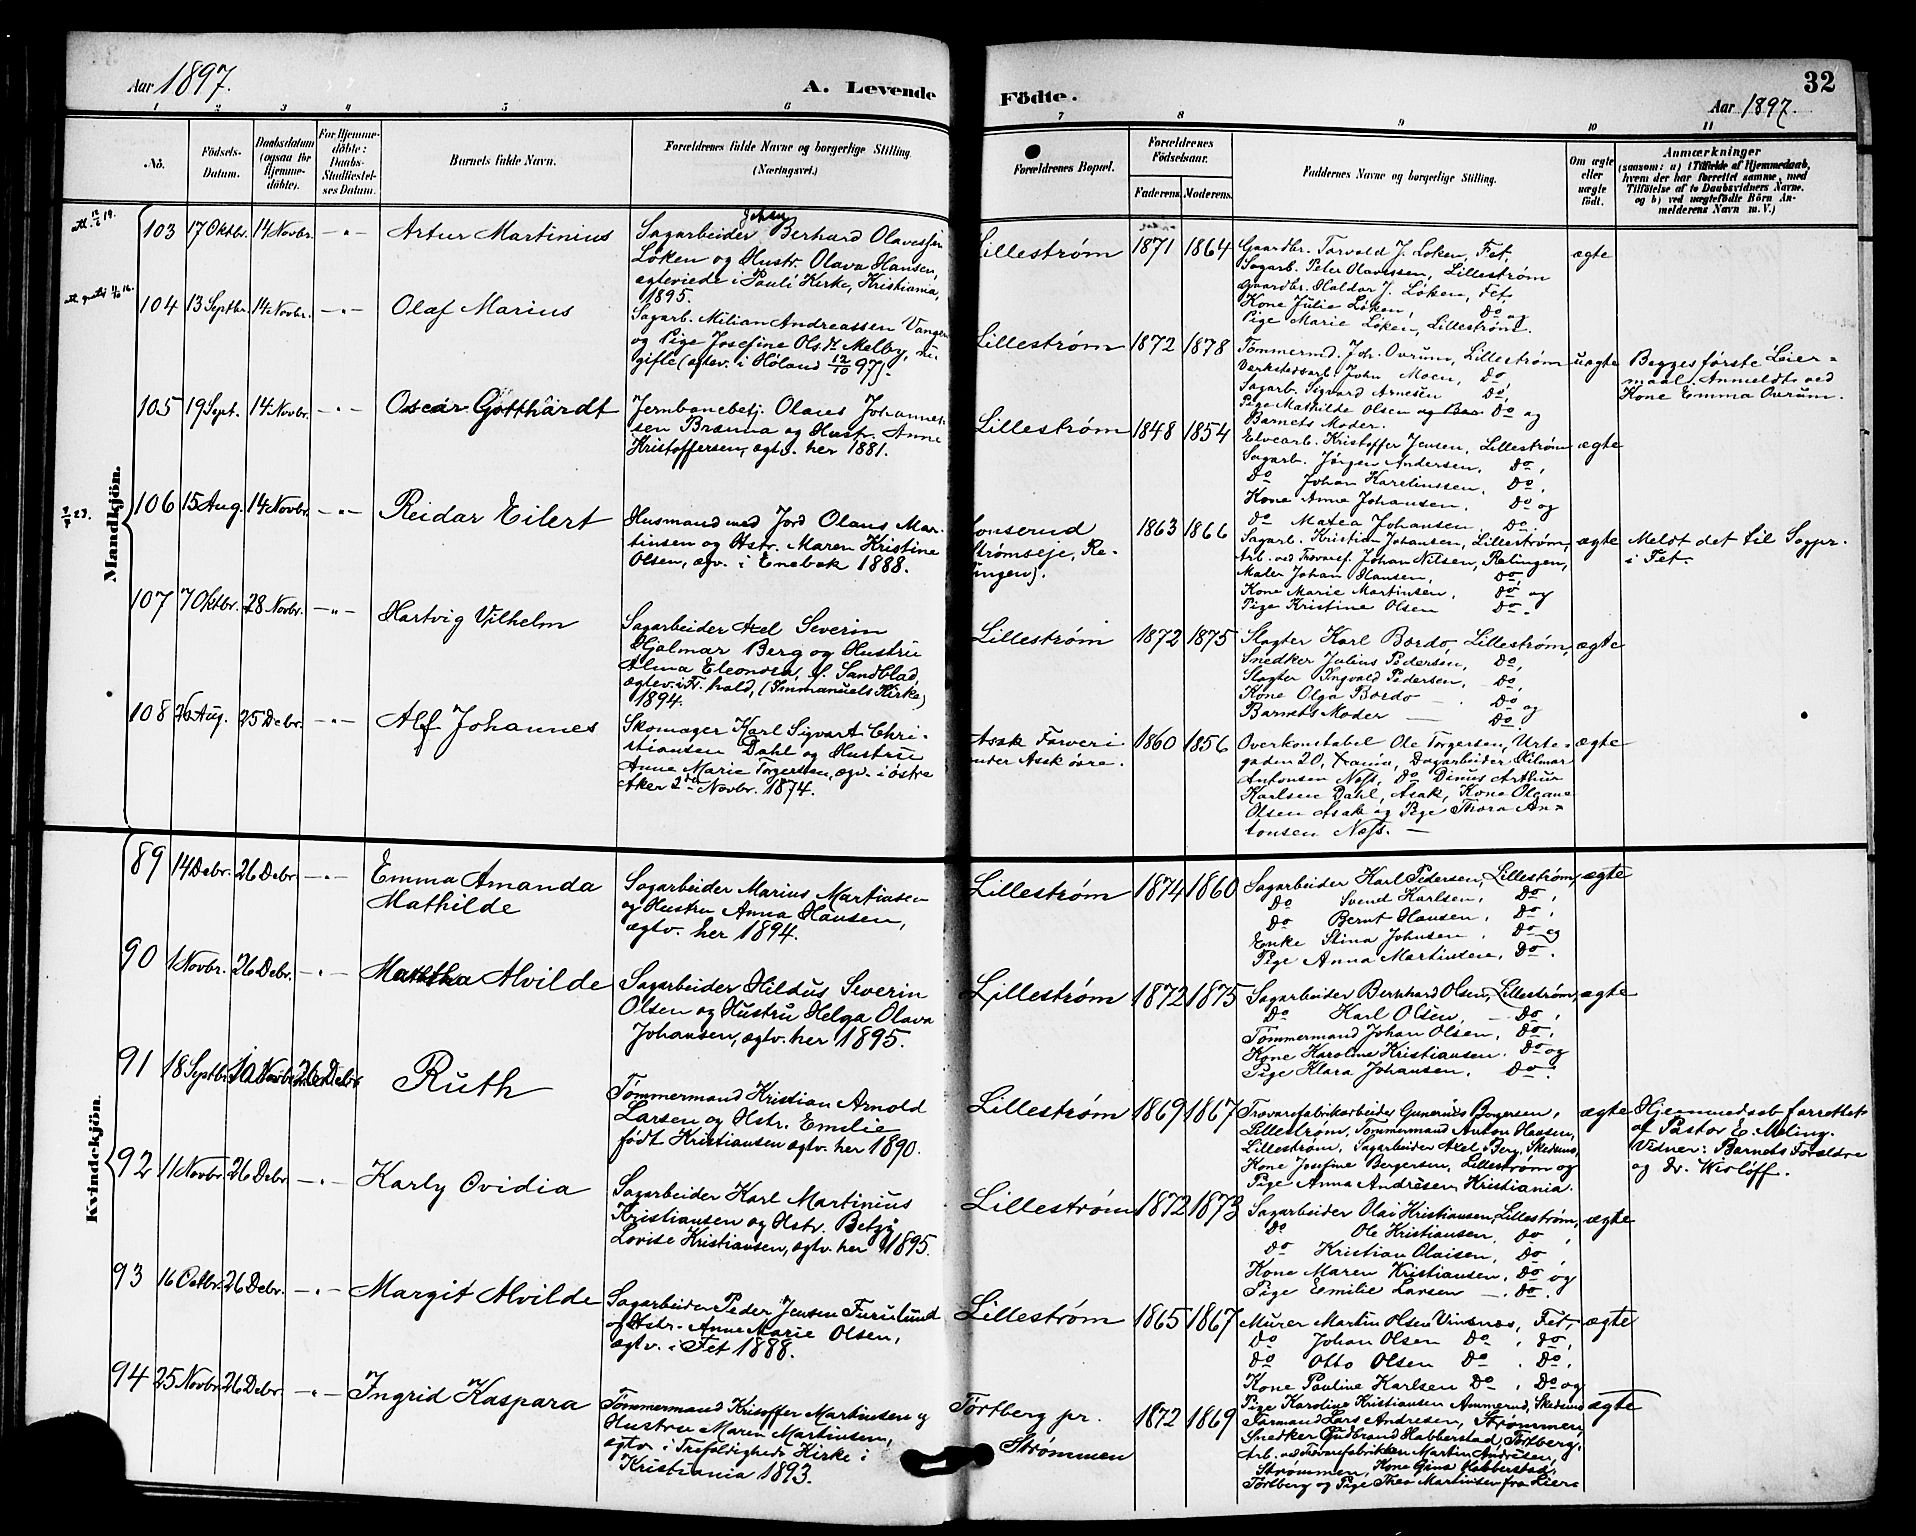 Aar 1897.
A. Levende
Födte.
32
Aar 1897.
1 2 3 4 5 6 7 8 9 10 11
No.
Födsels-
Datum.
Daabsdatum
(ogsaa for
Hjemme-
döbte).
For Hjemme-
döbte:
Daabs-
Stadfæstel-
ses Datum.
Barnets fulde Navn.
Forældrenes fulde Navne og borgerlige Stilling.
(Næringsvei.)
Forældrenes Bopæl.
Forældrenes
Födselsaar.
Faderens.
Moderens.
Faddernes Navne og borgerlige Stilling.
Om ægte
eller
uægte
födt.
Anmærkninger
(saasom: a) i Tilfælde af Hjemmedaab,
hvem der har forrettet samme, med
Tilföielse af to Daabsvidners Navne.
og b) ved uægtefödte Börn An-
melderens Navn m. V.)
Mandkjön.
103 17 Oktbr. 14 Novbr. -"- Artur Martinius
Sagarbeider Berhard Olavessen
Løken og Hustr. Olava Hansen,
egteviede i Pauli Kirke, Kristiania,
1895.
Lillestrøm 1871 1864
Gaardbr. Torvald J. Løken, Fet,
Sagarb. Peter Olavessen, Lillestrøm
Gaardbr. Haldor J. Løken, Fet,
Kone Julie Løken, Do og
Pige Marie Løken, Lillestrøm.
ægte
104 13 Septbr. 14 Novbr. -"- Olaf Marius
Sagarb. Milian Andreassen Vangen
og Pige Josefine Olsd. Melby, u-
gifte (egtev. i Høland 12/10 97).
Lillestrøm 1872 1878
Tømmermd. Joh. Ovrum, Lillestrøm
Verkstedsarb. John Moen, Do,
Sagarb. Sigvard Arnesen Do,
Pige Mathilde Olsen Do og
Barnets Moder.
uægte
Begges første Leier-
maal. Anmeldt ved
Kone Emma Ovrum.
105 19 Sept. 14 Novbr. -"- Oscar Gotthardt
Jernbanebetj. Olaus Johannes-
sen Brænna og Hustr. Anne
Kristoffersen, egtv. her 1881.
Lillestrøm 1848 1854
Elvearb. Kristoffer Jensen, Lillestrøm
Sagarb. Jørgen Andersen, Do,
Do Johan Karelinssen, Do,
Kone Anne Johansen, Do og
Do Matea Johansen. Do.
ægte
106 15 Aug. 14 Novbr. -"- Reidar Eilert
Husmand med Jord Olaus Mar-
tinsen og Hstr. Maren Kristine
Olsen, egv. i Enebak 1888.
Strømseje, Re-
lingen).
1863 1866
Sagarb. Kristian Johansen, Lillestrøm,
Arb. ved Trævaref. Johan Nilsen, Relingen,
Maler Johan Hansen, Do,
Kone Marie Martinsen, Do og
Pige Kristine Olsen Do.
ægte
Meldt det til Sogpr.
i Fet.
107 7 Oktbr. 28 Novbr. -"- Hartvig Vilhelm
Sagarbeider Axel Severin
Hjalmar Berg og Hustru
Alma Eleonora, f. Sandblad,
egtev. i Fr. hald, (Immanuels Kirke)
1894.
Lillestrøm 1872 1875
Slagter Karl Bordo, Lillestrøm,
Snedker Julius Pedersen, Do,
Slagter Ingvald Pedersen, Do,
Kone Olga Bordo - Do og
Barnets Moder - Do
ægte
108 26 Aug. 25 Debr. -"- Alf Johannes
Skomager Karl Sigvart Chri-
stiansen Dahl og Hustru
Anne Marie Torgersen, egv. i østre
Aker 2den Novbr. 1874.
Asak Farveri
under Asak øvre.
1860 1856
Overkonstabel Ole Torgersen, Urte-
gaden 20, Xania, Dagarbeider Hilmar
Antonsen Næss, Do Dinus Arthur
Karlsen Dahl, Asak, Kone Olgane
Olsen Asak og Pige Thora An-
tonsen Næss. -
ægte
Kvindekjön.
89 14 Debr. 26 Debr. -"- Emma Amanda
Mathilde
Sagarbeider Marius Martinsen
og Hustru Anna Hansen,
ægtv. her 1894.
Lillestrøm 1874 1860
Sagarbeider Karl Pedersen, Lillestrøm,
Do Svend Karlsen, Do,
Do Bernt Hansen, Do,
Enke Stina Johnsen, Do og
Pige Anna Martinsen, Do.
ægte
90 1 Novbr. 26 Debr. -"- Martha Alvilde
Sagarbeider Hildus Severin
Olsen og Hustru Helga Olava
Johansen, ægtv. her 1895.
Lillestrøm 1872 1875
Sagarbeider Bernhard Olsen, Lillestrøm,
Do Karl Olsen, - Do,
Tømmermand Johan Olsen, Do,
Kone Karoline Kristiansen. Do og
Pige Klara Johansen, Do.
ægte
91 18 Septbr. 10 Novbr. 26 Debr. Ruth
Tømmermand Kristian Arnold
Larsen og Hstr. Emilie
født Kristiansen ægtv. her 1890.
Lillestrøm 1869 1867
Trævarefabrikarbeider Gunerius Borgersen,
Lillestrøm, Tømmermand Anton Hansen,
Lillestrøm, Sagarbeider Axel Berg, Skedsmo,
Kone Josefine Bergersen, Lillestrøm og
Pige Anna Andresen, Kristiania.
ægte
Hjemmedaab forrettet
af Pastor E. Meling.
Vidner: Barnets Forældre
og Dr. Wisløff.
92 11 Novbr. 26 Debr. -"- Karly Ovidia
Sagarbeider Karl Martinius
Kristiansen og Hstr. Betzy
Lovise Kristiansen, ægtv. her 1895.
Lillestrøm 1872 1873
Sagarbeider Olai Kristiansen, Lillestrøm,
Do Ole Kristiansen, Do,
Do Kristian Olaisen, Do,
Kone Maren Kristiansen, Do og
Pige Emilie Larsen - Do.
ægte
93 16 Octbr. 26 Debr. -"- Margit Alvilde
Sagarbeider Peder Jensen Furulund
og Hstr. Anne Marie Olsen,
ægtv. i Fet 1888.
Lillestrøm 1865 1867
Murer Martin Olsen Vinsnæs, Fet,
Do Johan Olsen Do, Do,
Do Otto Olsen Do, Do,
Kone Pauline Karlsen Do, Do og
Pige Karoline Kristiansen Ammerud, Skedsmo
ægte
94 25 Novbr. 26 Debr. -"- Ingrid Kaspara
Tømmermand Kristoffer Martinsen og
Hustru Maren Martinsen,
ægtv. i Trefoldigheds Kirke i
Kristiania 1893.
Tortberg pr.
Strømmen
1872 1869
Formand Lars Andresen, Strømmen,
Snedker Gudbrand Habberstad, Tortberg,
Arb. ved Trævarefabrikken Martin Andresen,
Strømmen, Kone Gina Habberstad,
Tortberg og Pige Thea Martinsen fra Lier.
ægte